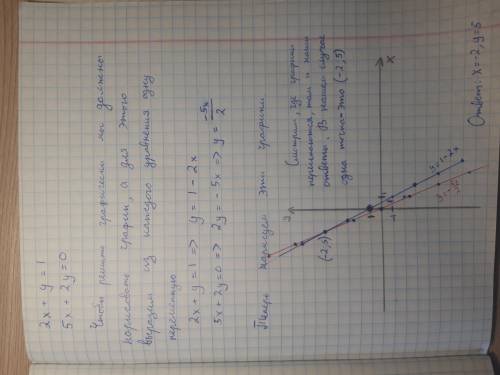 2x + y = 1
5x + 2y = 0
Чтобы решить графически мы должны
нарисовать графики, а для этого
выразим из каждого уравнения одну
переменную
2x + y = 1 => y = 1 - 2x
5x + 2y = 0 => 2y = -5x => y = -5x/2
Теперь нарисуем эти графики
Смотрим, где графики
пересекаются, там и наши
ответы. В нашем случае
одна точка - это (-2; 5)
y
x
(-2; 5)
1
1
Ответ: x = -2, y = 5